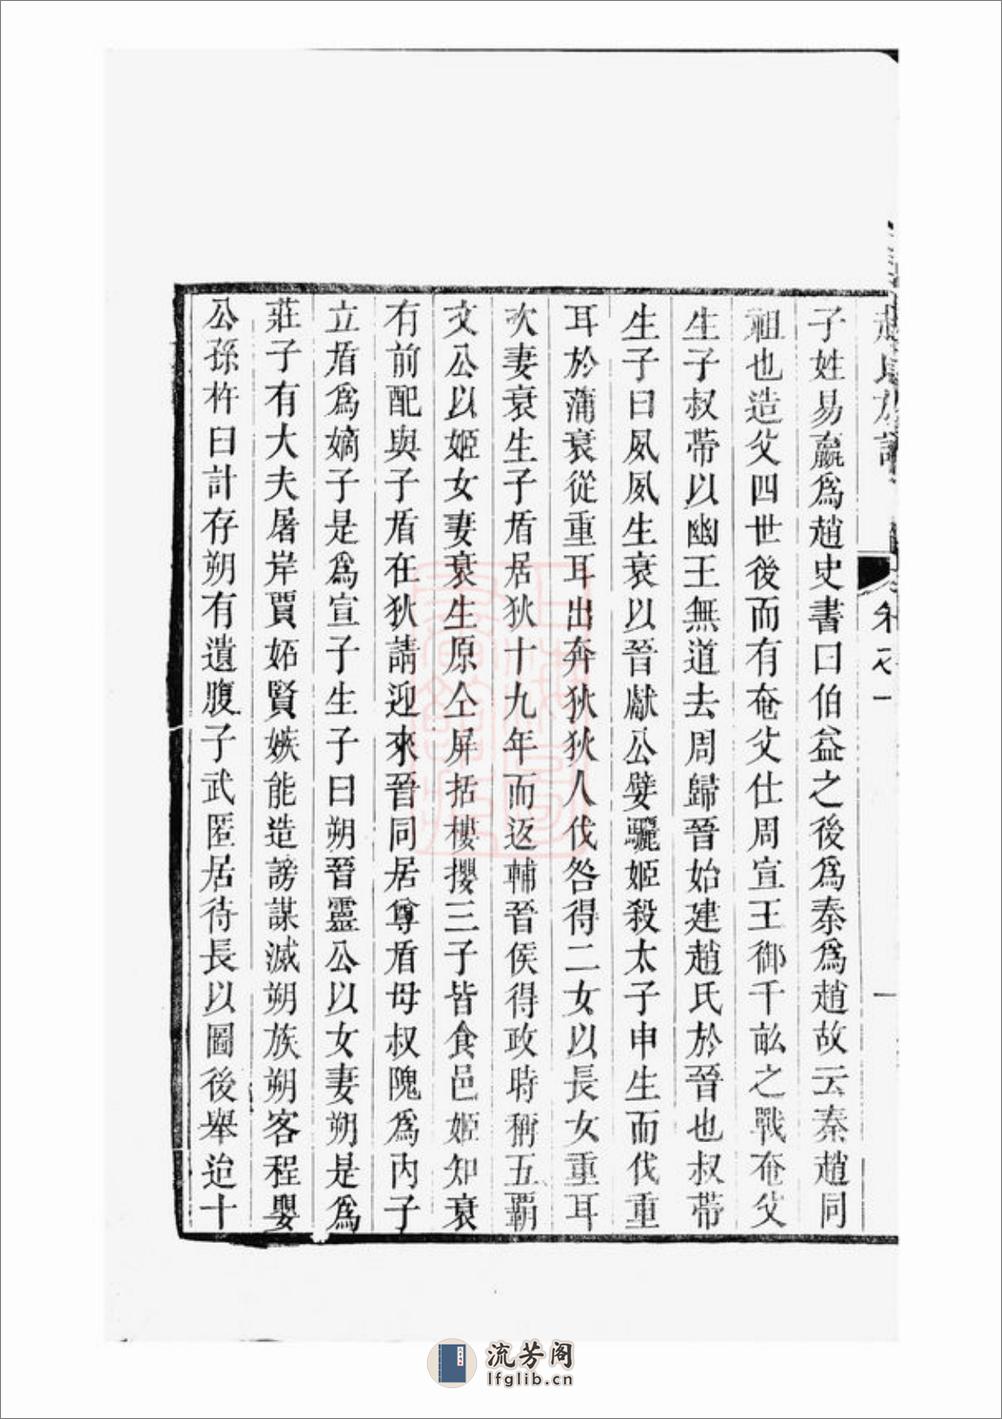 子姓易嬴爲趙史書曰伯益之後爲秦爲趙故云秦趙同
祖也造父四世後而有奄父仕周宣王御千畝之戰奄父
生子叔帶以幽王無道去周歸晉始建趙氏於晉也叔帶
生子曰夙夙生衰以晉獻公嬖驪姬殺太子申生而伐重
耳於蒲衰從重耳出奔狄狄人伐咎得二女以長女重耳
次妻衰生子盾居狄十九年而返輔晉侯得政時稱五覇
文公以姬女妻衰生原仝屏括樓攖三子皆食邑姬知衰
有前配與子盾在狄請迎來晉同居尊盾母叔隗爲内子
立盾爲嫡子是爲宣子生子曰朔晉靈公以女妻朔是爲
莊子有大夫屠岸賈妬賢嫉能造謗謀滅朔族朔客程嬰
公孫杵臼計存朔有遺腹子武匿居待長以圖後舉迨十
流芳阁
lfglib.cn